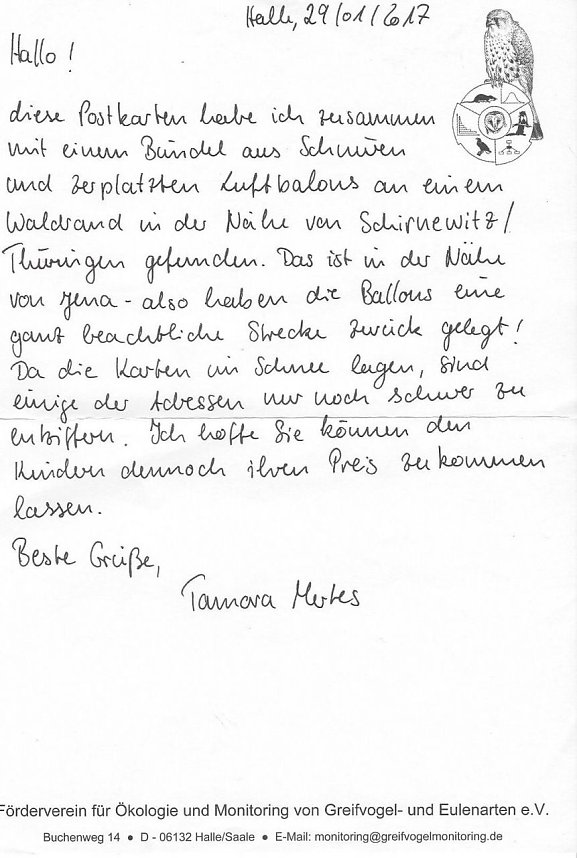 Halle, 29/01/2017
Hallo!
diese Postkarten habe ich zusammen
mit einem Bündel aus Schnüren
und zerplatzten Luftbalons an einem
Waldrand in der Nähe von Schirnewitz/
Thüringen gefunden. Das ist in der Nähe
von Jena - also haben die Ballons eine
ganz beachtliche Strecke zurück gelegt!
Da die Karten im Schnee lagen, sind
einige der Adressen nur noch schwer zu
entziffern. Ich hoffe Sie können den
Kindern dennoch ihren Preis zukommen
lassen.
Beste Grüße,
Tamara Mertes
Förderverein für Ökologie und Monitoring von Greifvogel- und Eulenarten e.V.
Buchenweg 14 ● D - 06132 Halle/Saale ● E-Mail: monitoring@greifvogelmonitoring.de